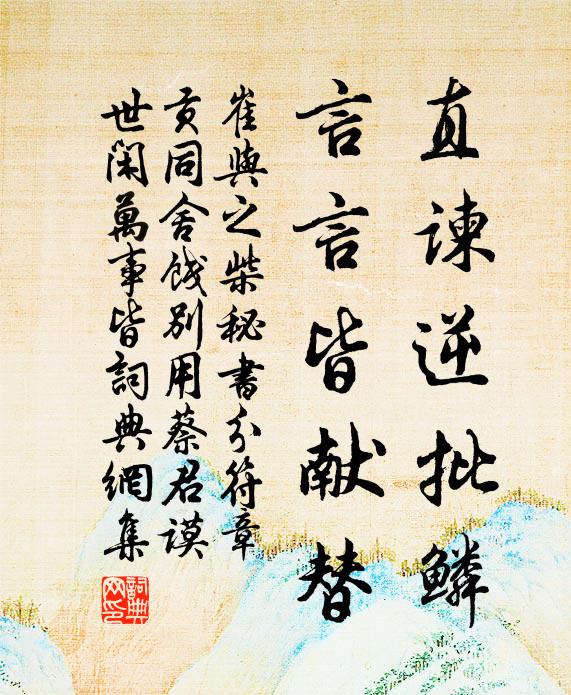 直諫逆批鱗
言言皆献替
崔與之柴秘書分符章
貢同舍餞別用蔡君謨
世閑萬事皆詞典網集
詞典網印